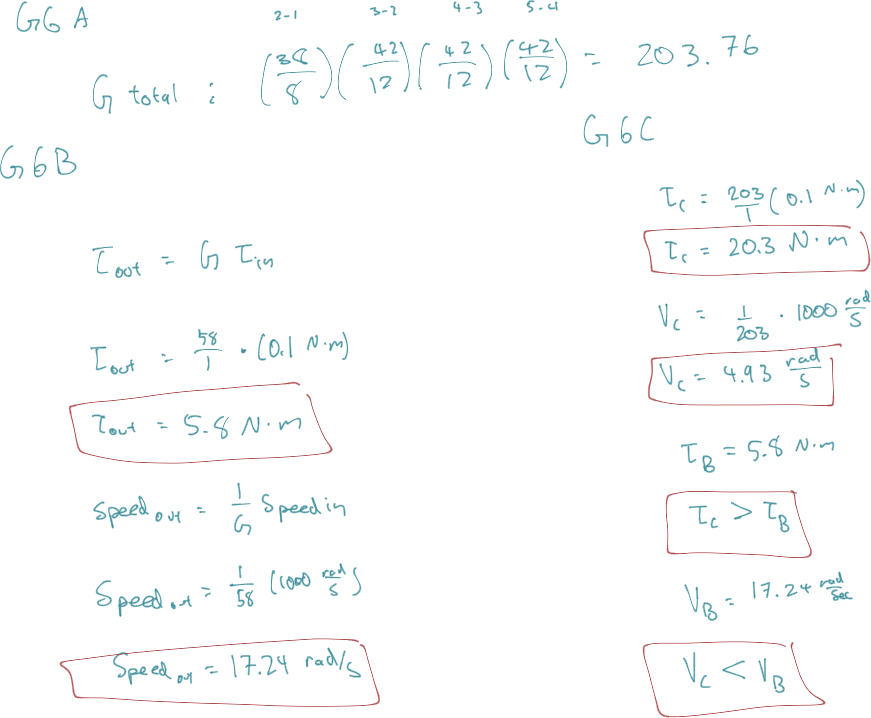 G6A
2-1 3-2 4-3 5-4
G total : (38/8)(42/12)(42/12)(42/12) = 203.76
G6B
τout = G τin
τout = 58/1 · (0.1 N·m)
τout = 5.8 N·m
Speed out = 1/G Speed in
Speed out = 1/58 (1000 rad/s)
Speed out = 17.24 rad/s
G6C
τc = 203/1 (0.1 N·m)
τc = 20.3 N·m
Vc = 1/203 · 1000 rad/s
Vc = 4.93 rad/s
τB = 5.8 N·m
τc > τB
VB = 17.24 rad/sec
Vc < VB